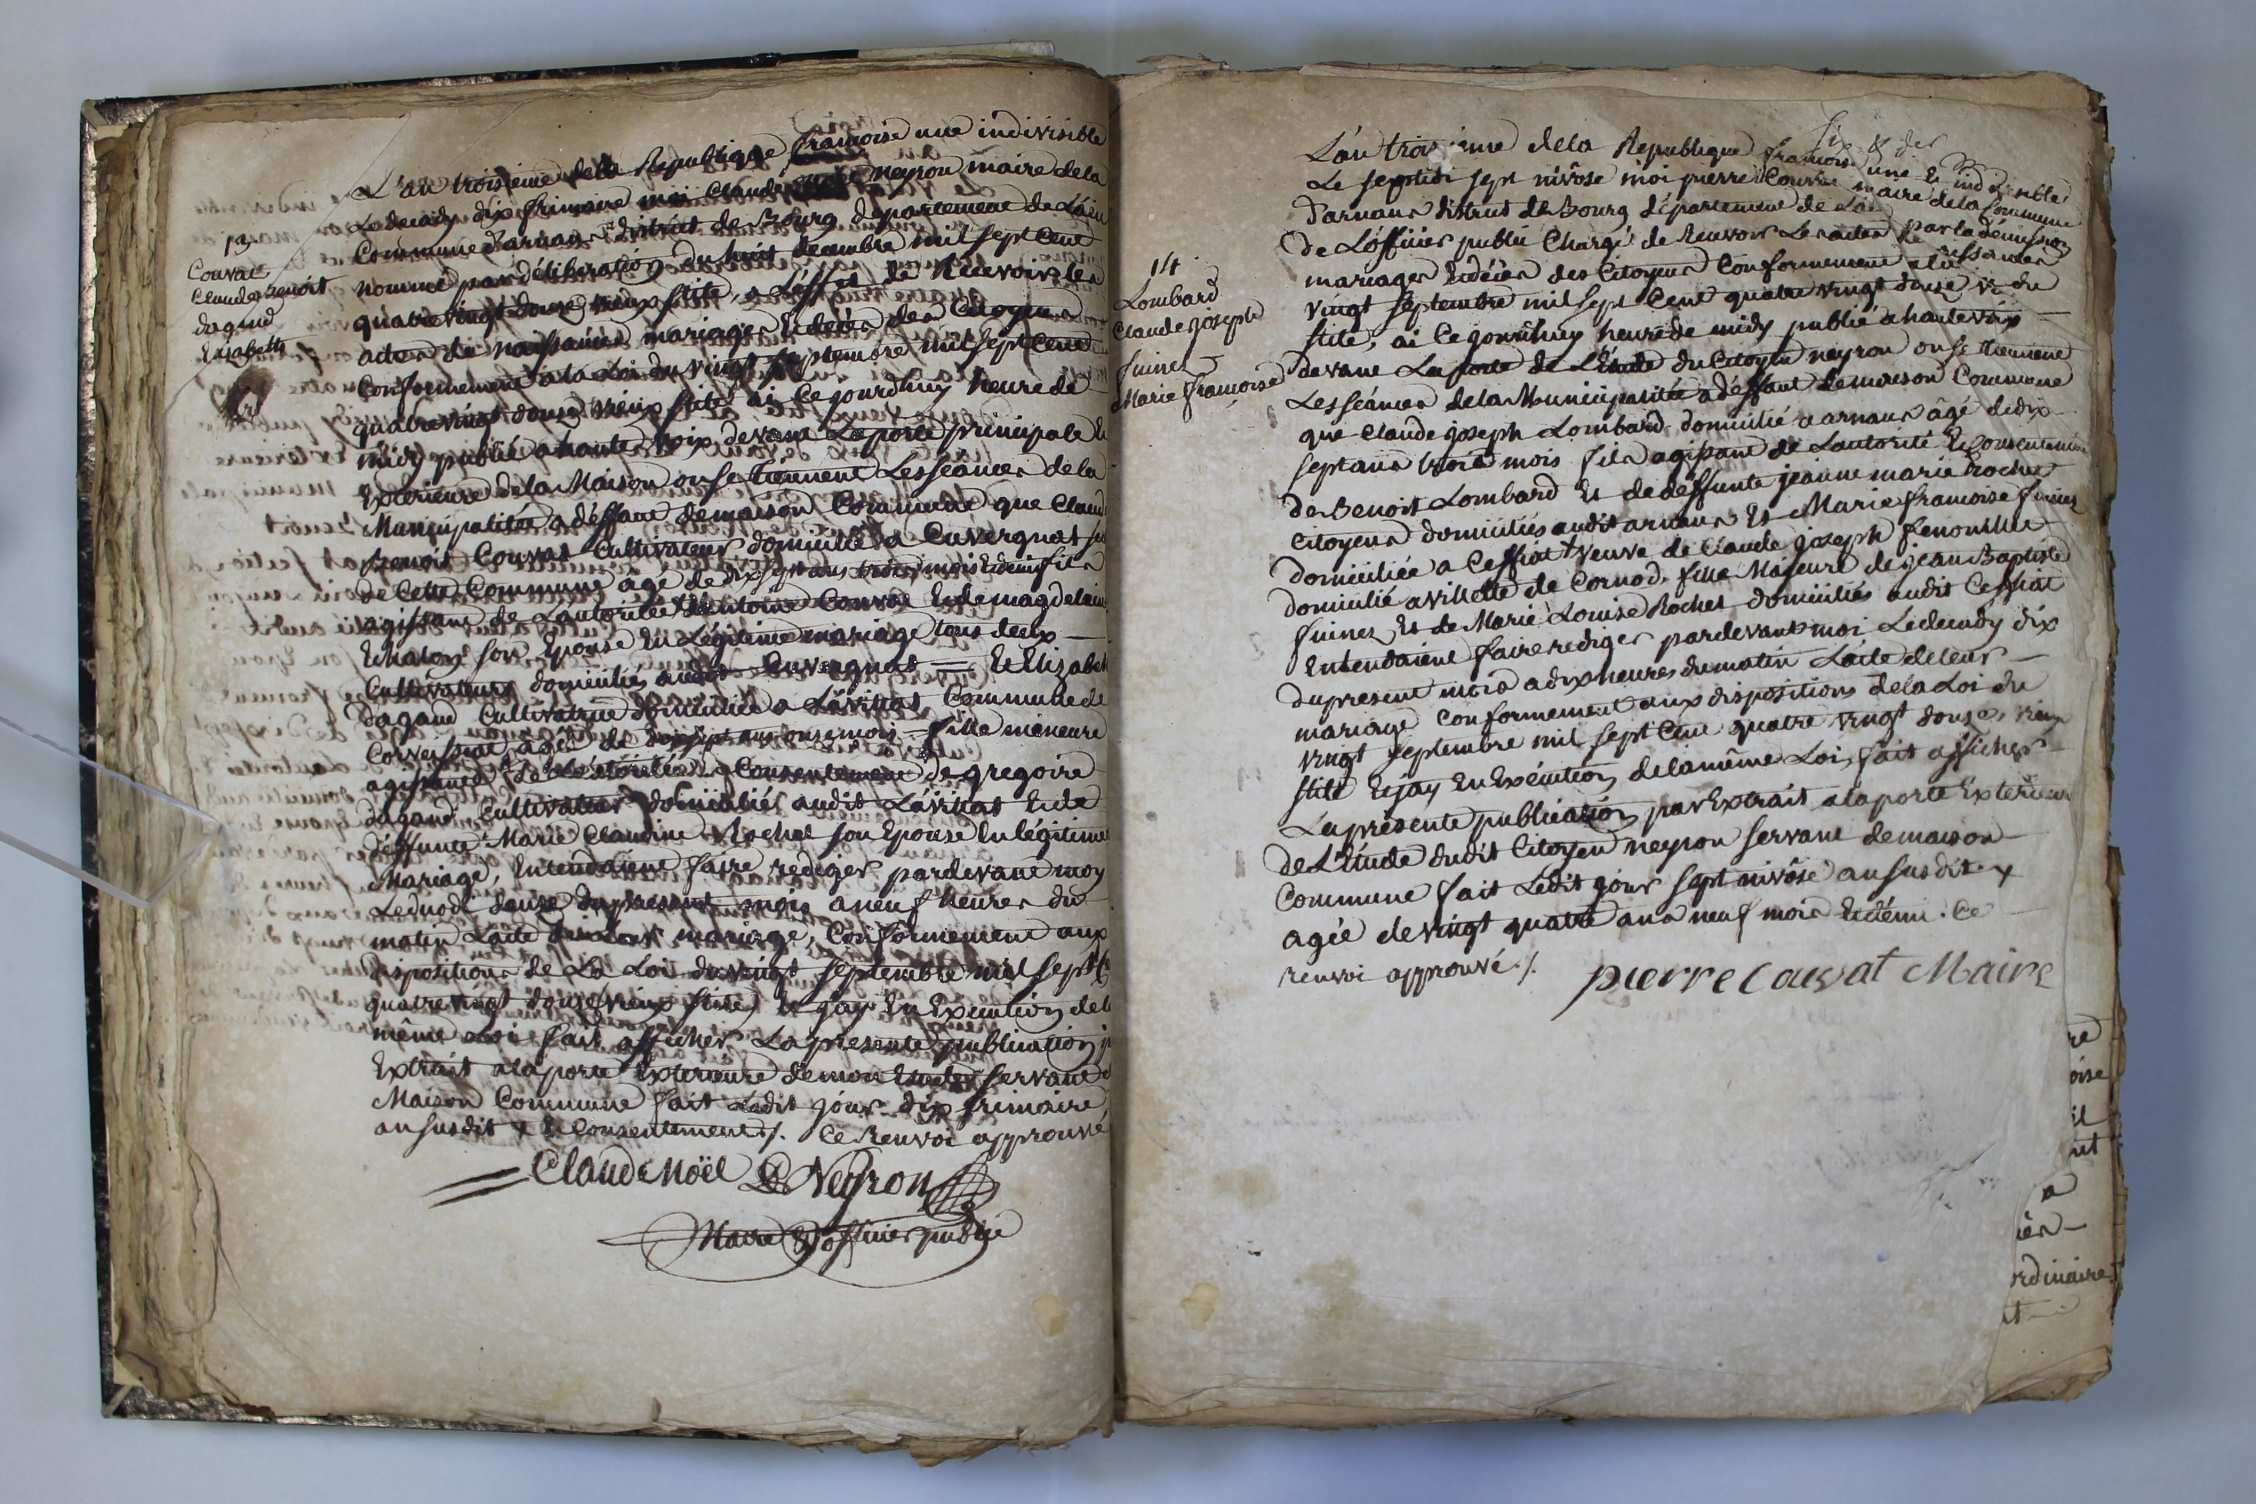 13
Couvat
Claude Benoit
dagand
Elisabeth
L'an troisieme de la Republique francoise une indivisible
Le decady dix frimaire moi Claude neyron maire de la
Commune d'arnans district de Bourg département de L'ain
nommé par déliberation du huit decembre mil sept cent
quatre vingt douze vieux stile, a L'effet de Recevoir les
actes de naissances mariages Et décès des Citoyens
Conformement a la Loi du vingt septembre mil sept cent
quatre vingt douze vieux stile ai Ce jourdhuy heure de
midy publié a haute voix devant La porte principale Et
Exterieure de la Maison ou se tiennent Les séances de la
Municipalitée a déffaut de maison Commune que Claude
Benoit Couvat Cultivateur domicilié a Cuvergnat
de Cette Commune agé de dix sept ans trois mois Et demi fils
agissant de Lautoritée + d'antoine Couvat Et de magdelaine
Chaton son Epouse En Légitime mariage tous deux
Cultivateurs domiciliés audit Cuvergnat = Et Elizabeth
dagand Cultivatrice domiciliée a Lavillat Commune de
Corveissiat agée de dix sept ans onse mois fille mineure
agissante de L'autoritée & Consentement de gregoire
dagand Cultivateur domiciliés audit Lavillat Et de
déffunte Marie Claudine Rochet son Epouse En légitime
Mariage, Entendaient faire rediger pardevant moy
Le duodi douze du present mois a neuf heures du
matin Lacte de Leur mariage, Conformement aux
dispositions de La Loi du vingt septembre mil sept C
quatre vingt douze (vieux stile) Et j'ay En Execution de la
même Loi fait afficher La presente publication
Extrait a la porte Exterieure de mon Etude servant
Maison Commune fait Ledit jour dix frimaire
an susdit + & Consentement ./. Ce Renvoi approuvé
Claude Noël Neyron
Maire & officier public
14
Lombard
Claude joseph
fuinez
Marie françoise
L'an troisieme de la Republique francoise une & indivisible
Le septidi sept nivôse moi pierre Couvat maire de la Commune
d'arnans district de Bourg département de L'ain par la démission
de L'officier public Chargé de Recevoir Les actes de naissances
mariages Et décès des Citoyens Conformement a la Loi du
vingt septembre mil sept Cent quatre vingt douze
stile, ai Ce jourdhuy heure de midy publié a haute voix
devant La porte de L'Etude du Citoyen neyron ou se tiennent
Les séances de la Municipalitée a déffaut de maison Commune
que Claude joseph Lombard domicilié a arnans âgé de dix
sept ans trois mois fils agissant de Lautorité & Consentement
de Benoit Lombard Et de déffunte jeanne marie Rochet
Citoyens domiciliés audit arnans Et Marie francoise fuinez
domiciliée a Ceffiat + veuve de Claude joseph fenouillet
domicilié a villette de Cornod, fille Majeure de jean Baptiste
fuinez Et de Marie Louise Rochet domiciliés audit Ceffiat
Entendaient faire rediger pardevant moi Le decady dix
du present mois a dix heures du matin Lacte de leur
mariage Conformement aux dispositions de la Loi du
vingt septembre mil sept Cent quatre vingt douze, vieux
stile Et jay En Exécution de la même Loi, fait afficher
La présente publication par Extrait a la porte Exterieure
de L'Etude dudit Citoyen neyron servant de maison
Commune fait Ledit jour sept nivôse an susdit +
agée de vingt quatre ans neuf mois Et demi. Ce
renvoi approuvé ./.
pierre Couvat Maire
re
oise
il
a
rdinaire